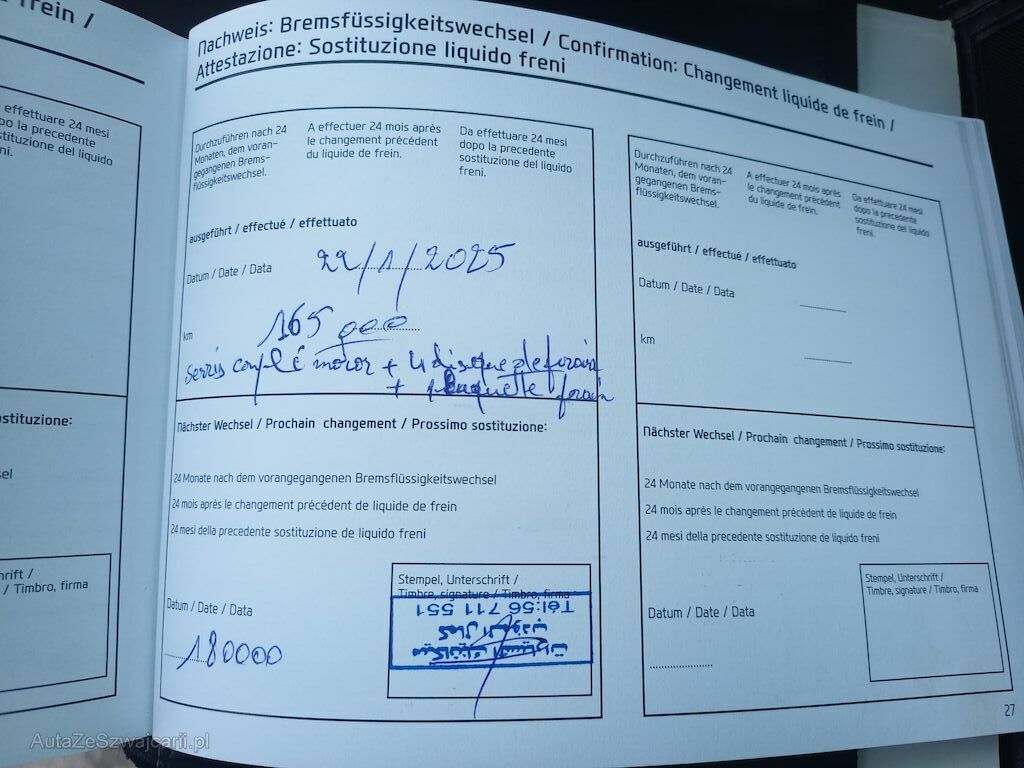 frein /
effettuare 24 mesi
po la precedente
stituzione del liquido
ni.
ostituzione:
sel
hrift /
/ Timbro, firma
Nachweis: Bremsfüssigkeitswechsel / Confirmation: Changement liquide de frein /
Attestazione: Sostituzione liquido freni
Durchzuführen nach 24
Monaten, dem voran-
gegangenen Brems-
flüssigkeitswechsel.
A effectuer 24 mois après
le changement précédent
du liquide de frein.
Da effettuare 24 mesi
dopo la precedente
sostituzione del liquido
freni.
ausgeführt / effectué / effettuato
Datum / Date / Data 22/1/2025
km 165 000
+ 4 disque de
+ plaquette
Nächster Wechsel / Prochain changement / Prossimo sostituzione:
24 Monate nach dem vorangegangenen Bremsflüssigkeitswechsel
24 mois après le changement précédent de liquide de frein
24 mesi della precedente sostituzione de liquido freni
Datum / Date / Data
180000
Stempel, Unterschrift /
Timbre, signature / Timbro, firma
Tél:56 711 551
Durchzuführen nach 24
Monaten, dem voran-
gegangenen Brems-
flüssigkeitswechsel.
A effectuer 24 mois après
le changement précédent
du liquide de frein.
Da effettuare 24 mesi
dopo la precedente
sostituzione del liquido
freni.
ausgeführt / effectué / effettuato
Datum / Date / Data
km
Nächster Wechsel / Prochain changement / Prossimo sostituzione:
24 Monate nach dem vorangegangenen Bremsflüssigkeitswechsel
24 mois après le changement précédent de liquide de frein
24 mesi della precedente sostituzione de liquido freni
Datum / Date / Data
Stempel, Unterschrift /
Timbre, signature / Timbro, firma
27
AutaZeSzwajcarii.pl